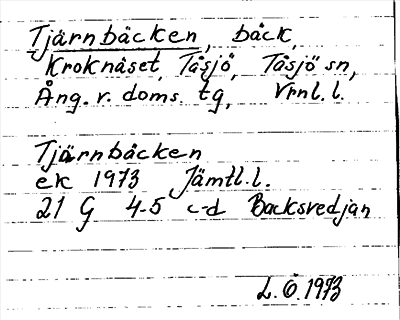 Tjärnbäcken, bäck,
Kroknäset, Tåsjö, Tåsjö sn,
Ång. v. doms. tg, Vrnl. l.
Tjärnbäcken
ek 1973 Jämtl. l.
21 G 4-5 c-d Backsvedjan
L. Ö. 1973